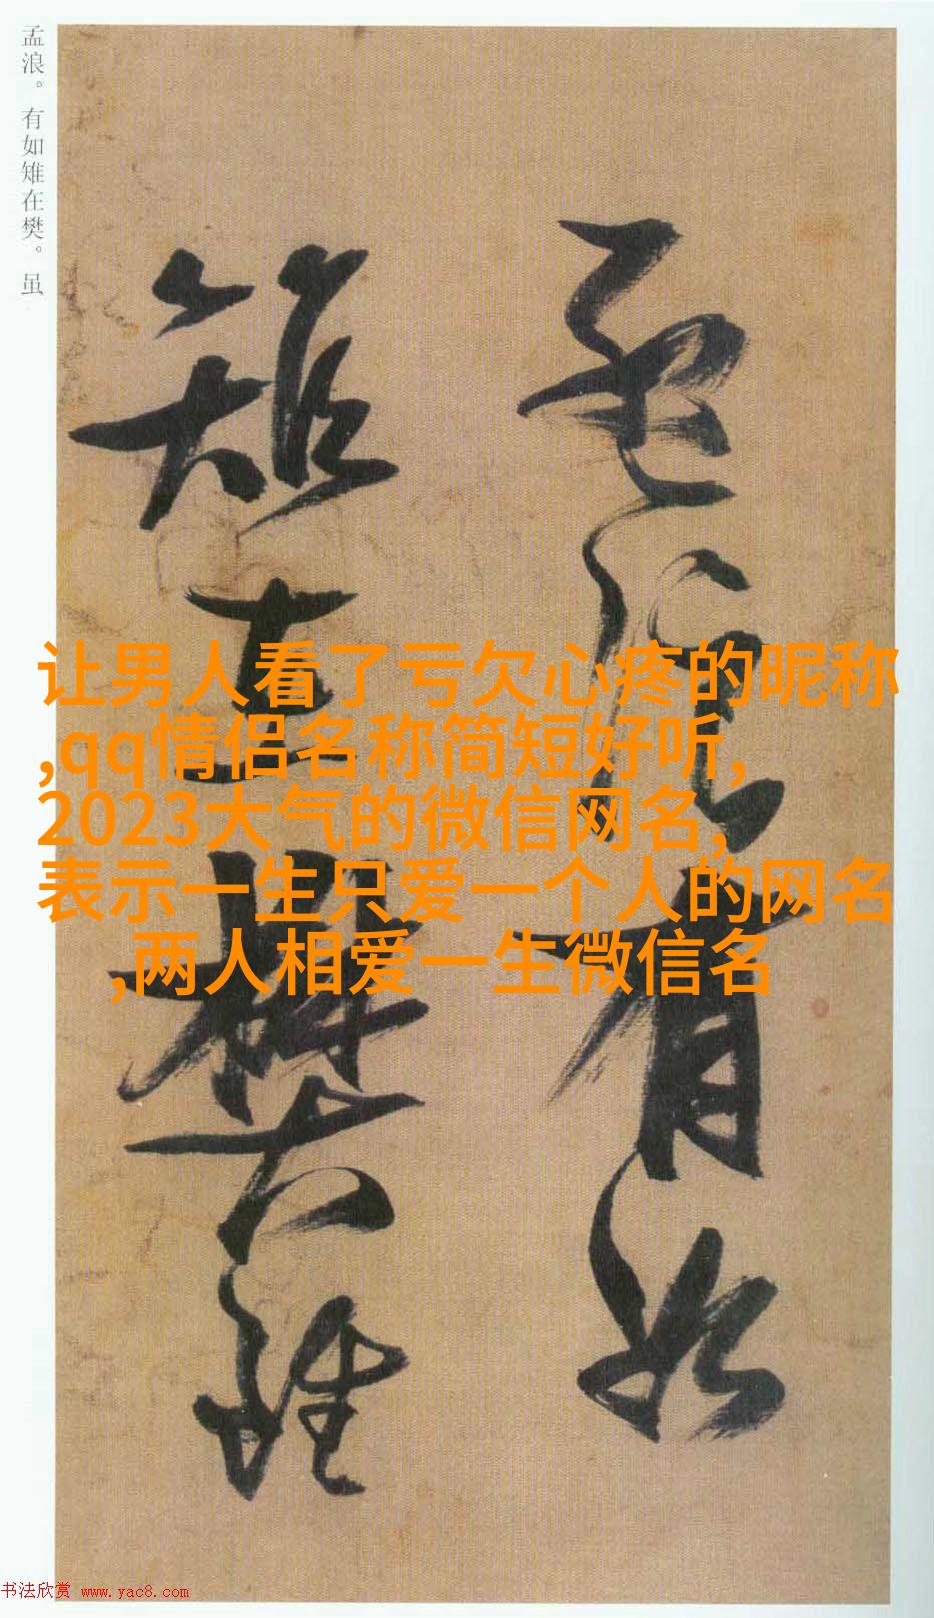 孟浪。有如雉在樊。虽
孟浪有如
雉在樊虽
让男人看了亏欠心疼的昵称
,qq情侣名称简短好听,
2023大气的微信网名,
表示一生只爱一个人的网名
,两人相爱一生微信名
书法欣赏 www.yac8.com